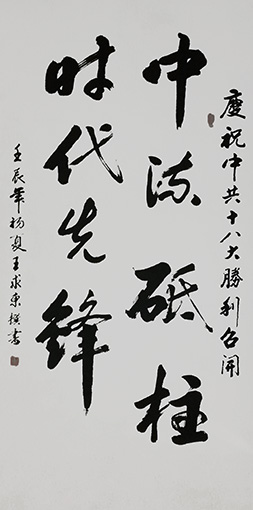 庆祝中共十八大勝利召開
中流砥柱
时代先鋒
壬辰年初夏王求東撰書